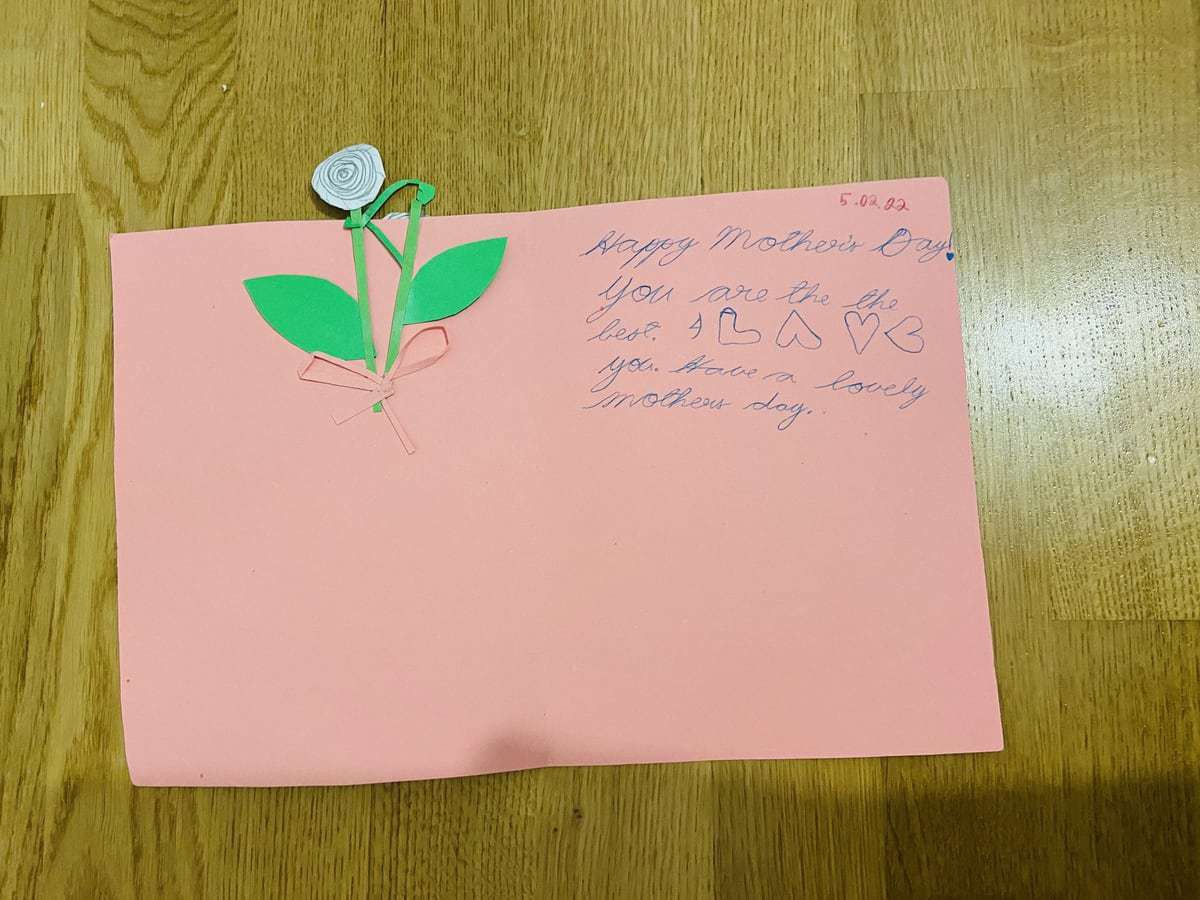 5.02.22
Happy Mother's Day!
You are the the
best. I
you. Have a lovely
mothers day..